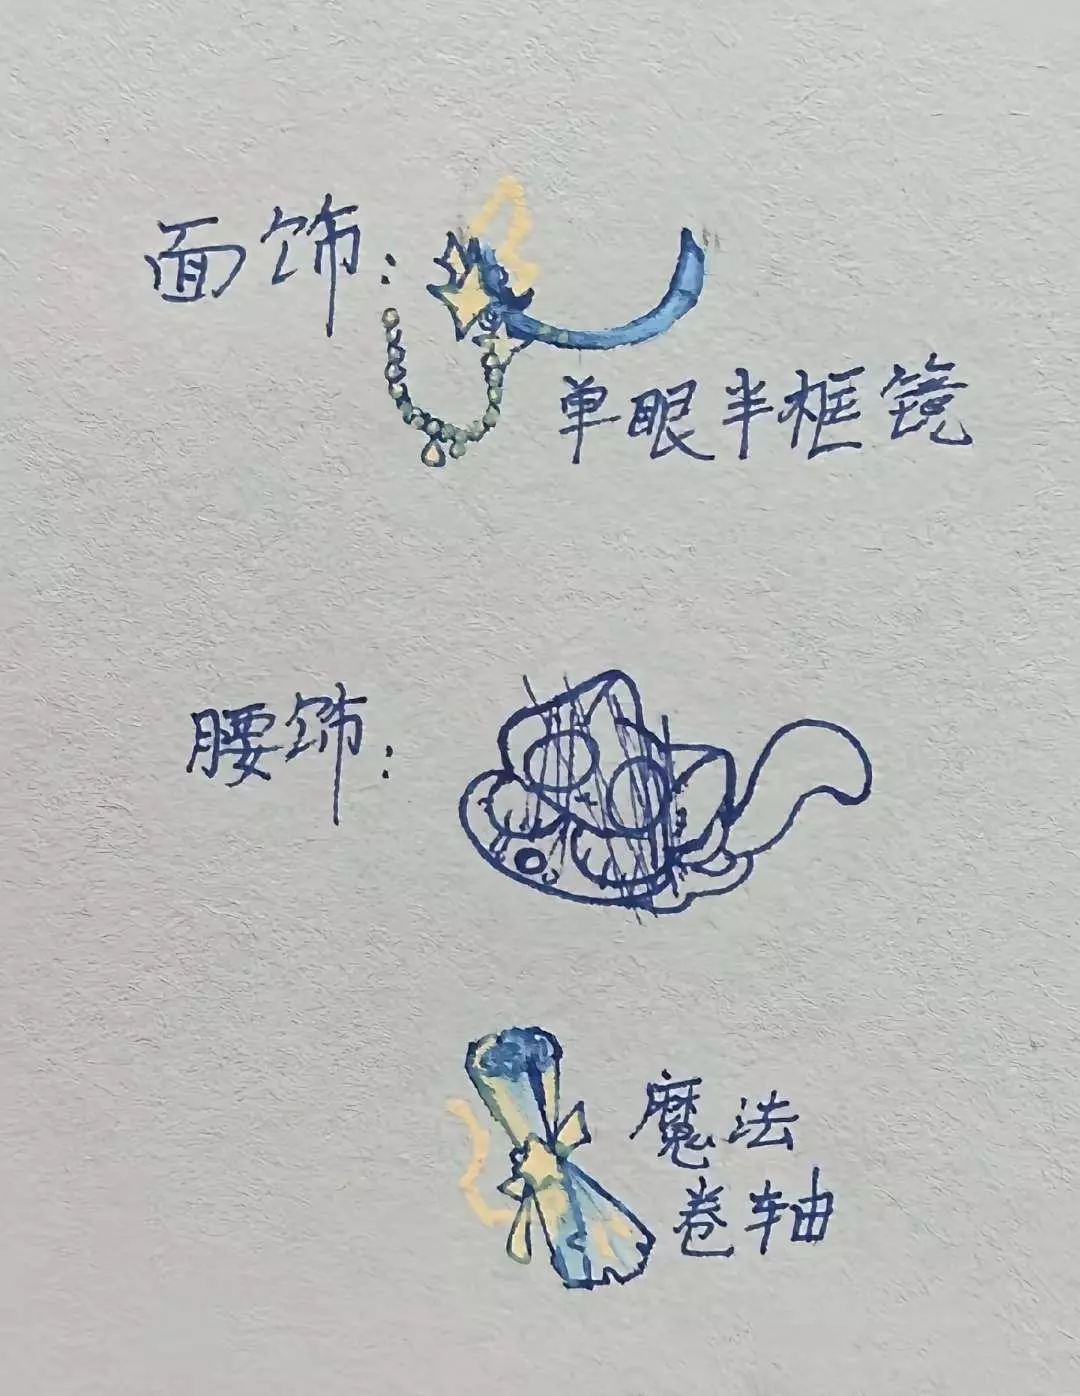 面饰：
单眼半框镜
腰饰：
魔法
卷轴